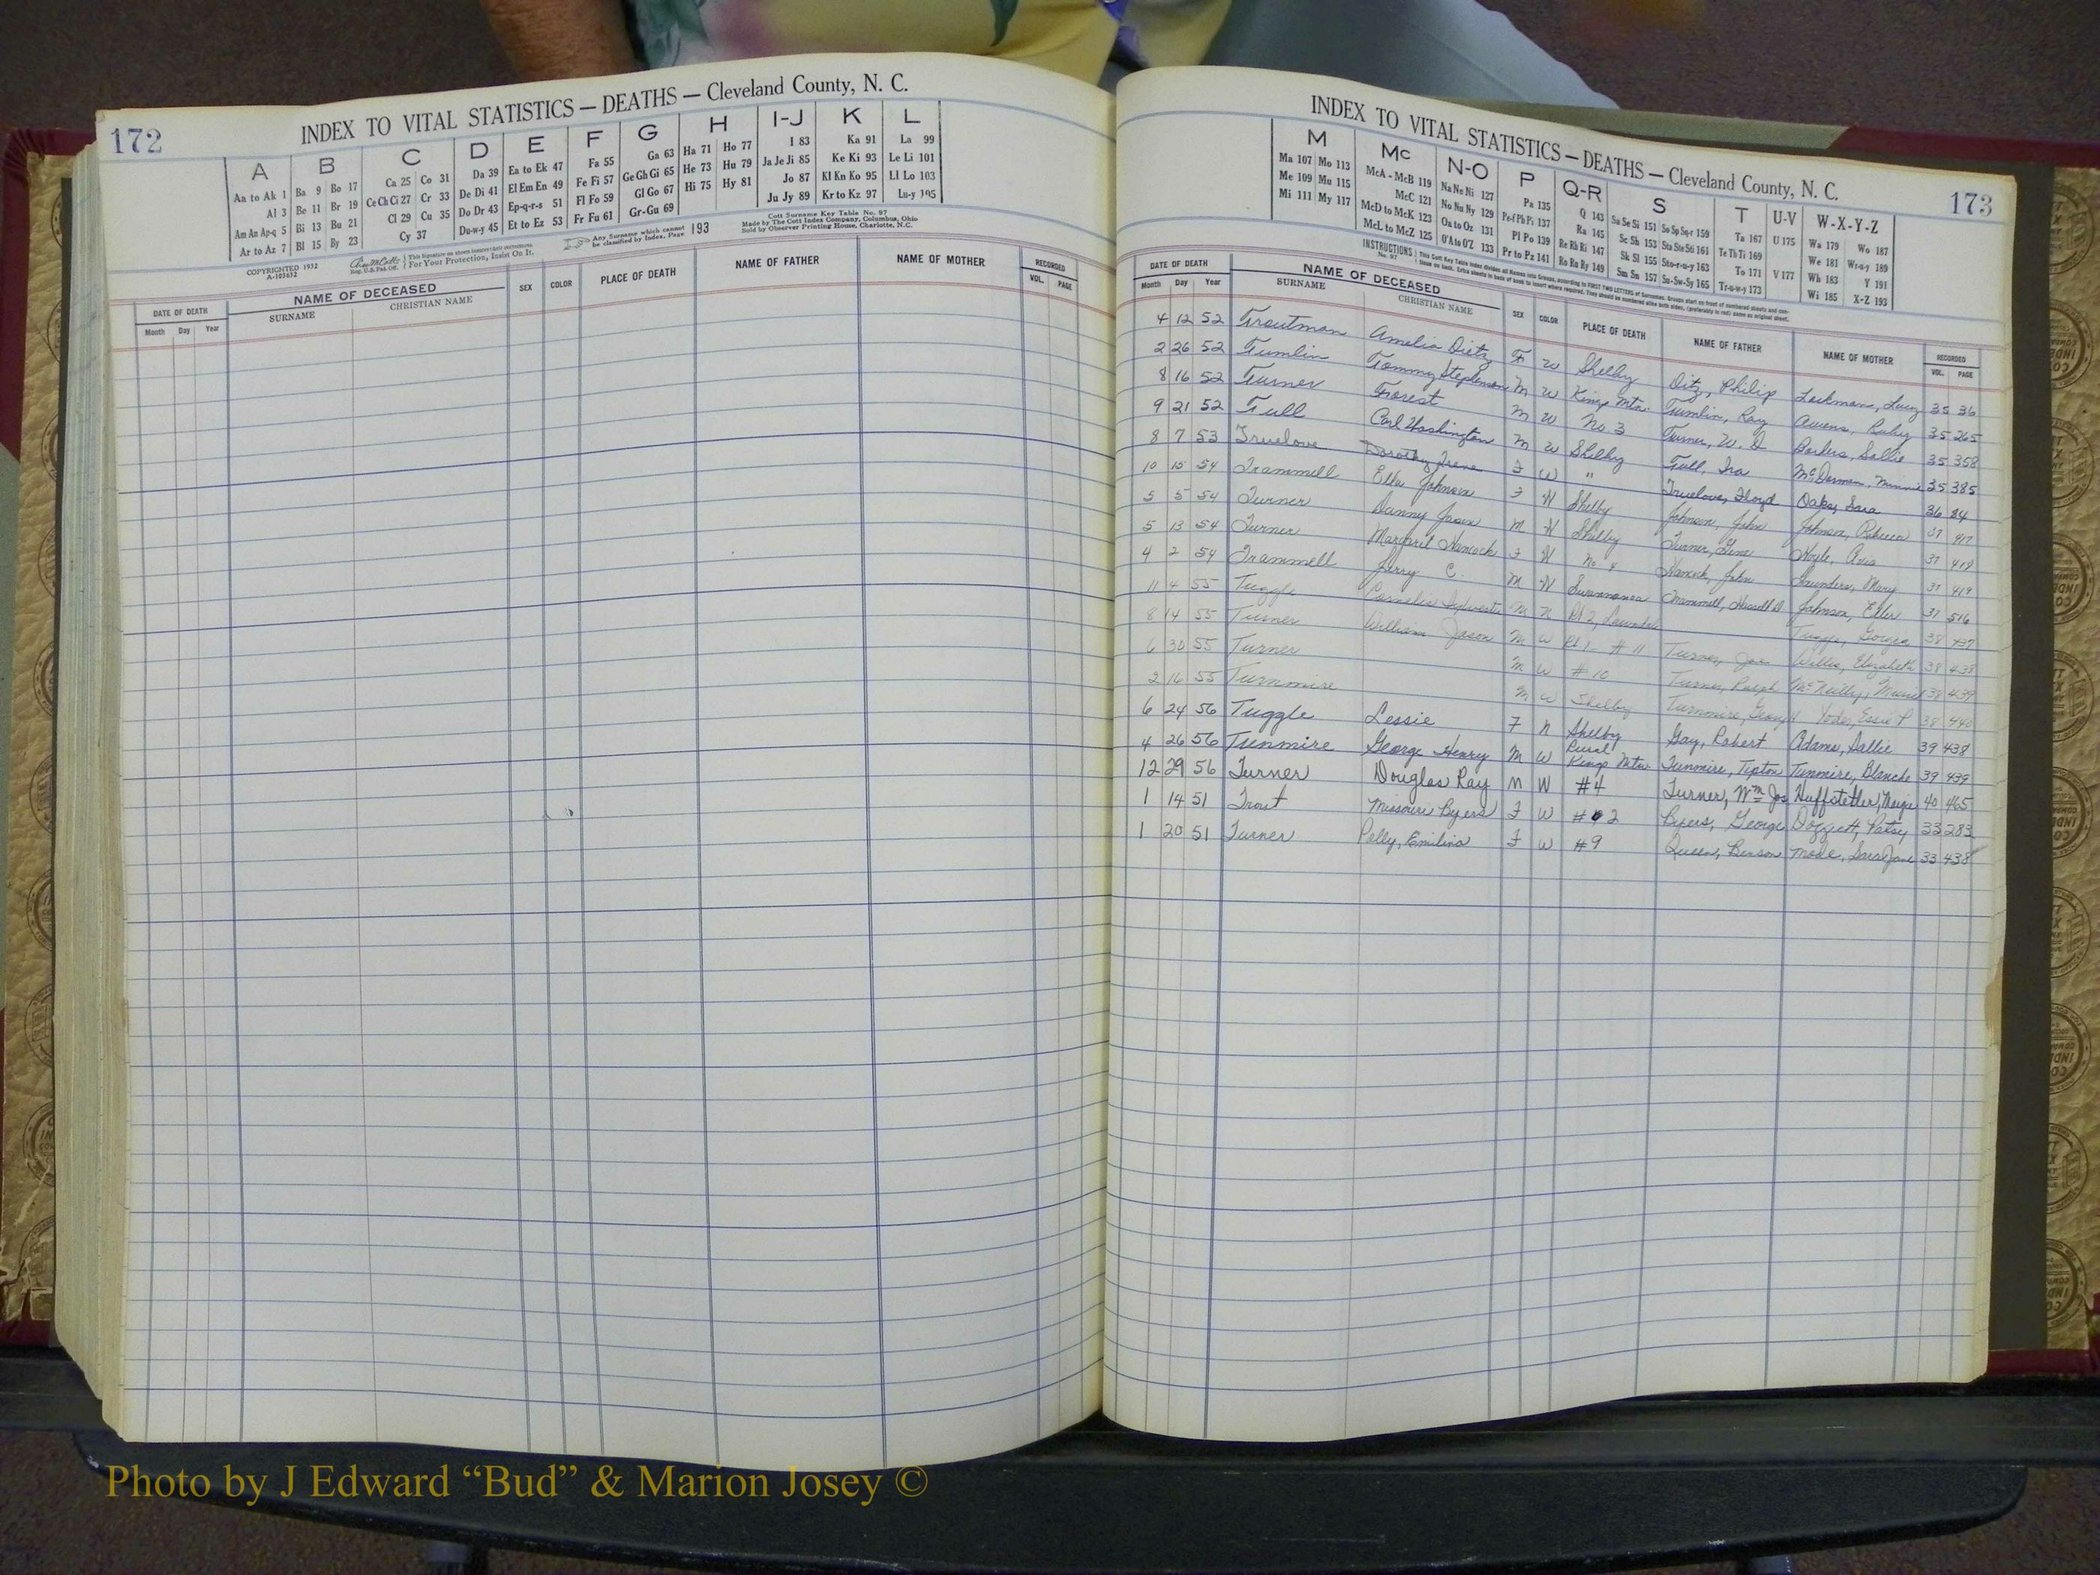 172
INDEX TO VITAL STATISTICS — DEATHS — Cleveland County, N. C.
A B C D E F G H I-J K L
Aa to Ak 1 Ba 9 Bo 17 Ca 25 Co 31 Da 39 Ea to Ek 47 Fa 55 Ga 63 Ha 71 Ho 77 I 83 Ka 91 La 99
Al 3 Be 11 Br 19 Ce Ch Ci 27 Cr 33 De Di 41 El Em En 49 Fe Fi 57 Ge Gh Gi 65 He 73 Hu 79 Ja Je Ji 85 Ke Ki 93 Le Li 101
Am An Ap-q 5 Bi 13 Bu 21 Cl 29 Cu 35 Do Dr 43 Ep-q-r-s 51 Fl Fo 59 Gl Go 67 Hi 75 Hy 81 Jo 87 Kl Kn Ko 95 Ll Lo 103
Ar to Az 7 Bl 15 By 23 Cy 37 Du-w-y 45 Et to Ez 53 Fr Fu 61 Gr-Gu 69 Ju Jy 89 Kr to Kz 97 Lu-y 105
COPYRIGHTED 1932
A-103632
Reg. U.S. Pat. Off.
For Your Protection, Insist On It.
Any Surname which cannot be classified by Index, Page 193
Cott Surname Key Table No. 97
Made by The Cott Index Company, Columbus, Ohio
Sold by Observer Printing House, Charlotte, N.C.
DATE OF DEATH NAME OF DECEASED SEX COLOR PLACE OF DEATH NAME OF FATHER NAME OF MOTHER RECORDED
Month Day Year SURNAME CHRISTIAN NAME VOL. PAGE
INDEX TO VITAL STATISTICS — DEATHS — Cleveland County, N. C.
173
M Mc N-O P Q-R S T U-V W-X-Y-Z
Ma 107 Mo 113 McA - McB 119 Na Ne Ni 127 Pa 135 Q 143 Sa Se Si 151 So Sp Sq-r 159 Ta 167 U 175 Wa 179 Wo 187
Me 109 Mu 115 McC 121 No Nu Ny 129 Pe-f Ph Pi 137 Ra 145 Sc Sh 153 Sta Ste Sti 161 Te Th Ti 169 We 181 Wr-u-y 189
Mi 111 My 117 McD to McK 123 Oa to Oz 131 Pl Po 139 Re Rh Ri 147 Sk Sl 155 Sto-r-u-y 163 To 171 V 177 Wh 183 Y 191
McL to McZ 125 O'A to O'Z 133 Pr to Pz 141 Ro Ru Ry 149 Sm Sn 157 Su-Sw-Sy 165 Tr-u-w-y 173 Wi 185 X-Z 193
INSTRUCTIONS No. 97
DATE OF DEATH NAME OF DECEASED SEX COLOR PLACE OF DEATH NAME OF FATHER NAME OF MOTHER RECORDED
Month Day Year SURNAME CHRISTIAN NAME VOL. PAGE
4 12 52 Troutman Amelia Dietz F W Shelby Ditz, Philip Lackmans, Lucy 35 36
2 26 52 Tumlin Tommy Stephenson M W Kings Mtn. Tumlin, Ray Owens, Ruby 35 265
8 16 52 Turner Forest M W No 3 Turner, W. D Barkers, Sallie 35 358
9 21 52 Tull Carl Washington M W Shelby Tull, Ira Minnie 35 385
8 7 53 Truelove Dorothy Irene F W " Truelove, Floyd Oakes, Sara 36 84
10 15 54 Trammell Etta Johnson F W Shelby Johnson, John Johnson, Rebecca 37 417
5 5 54 Turner Danny Jason M W Shelby Turner, Gene Hoyle, Avis 37 418
5 13 54 Turner Margaret Hancock F W No 4 Hancock, John Saunders, Mary 37 419
4 2 54 Trammell Jerry C. M W Swannanoa Trammell, Johnson, Etter 37 516
11 4 55 Tuggle Cornelius Sylvester M N Rt 2, Lawndale Tuggle, Gorgia 38 437
8 14 55 Turner William Jason M W Rt 1 # 11 Turner, Jas Willis, Elizabeth 38 438
6 30 55 Turner M W # 10 Turner, Ralph McNeilly, 38 439
2 16 55 Tunmire M W Shelby Tunmire, Yoder, Essie P 38 440
6 24 56 Tuggle Lessie F N Shelby Gay, Robert Adams, Sallie 39 438
4 26 56 Tunmire George Henry M W Rural Kings Mtn. Tunmire, Tipton Tunmire, Blanche 39 439
12 29 56 Turner Douglas Ray M W #4 Turner, Wm Jos Huffstetler, 40 465
1 14 51 Trout Missouri Byers F W # 2 Byers, George Doggett, Patsy 33 283
1 20 51 Turner Pelly, Emilina F W #9 Queen, Benson Mode, Sara Jane 33 438
Photo by J Edward “Bud” & Marion Josey ©